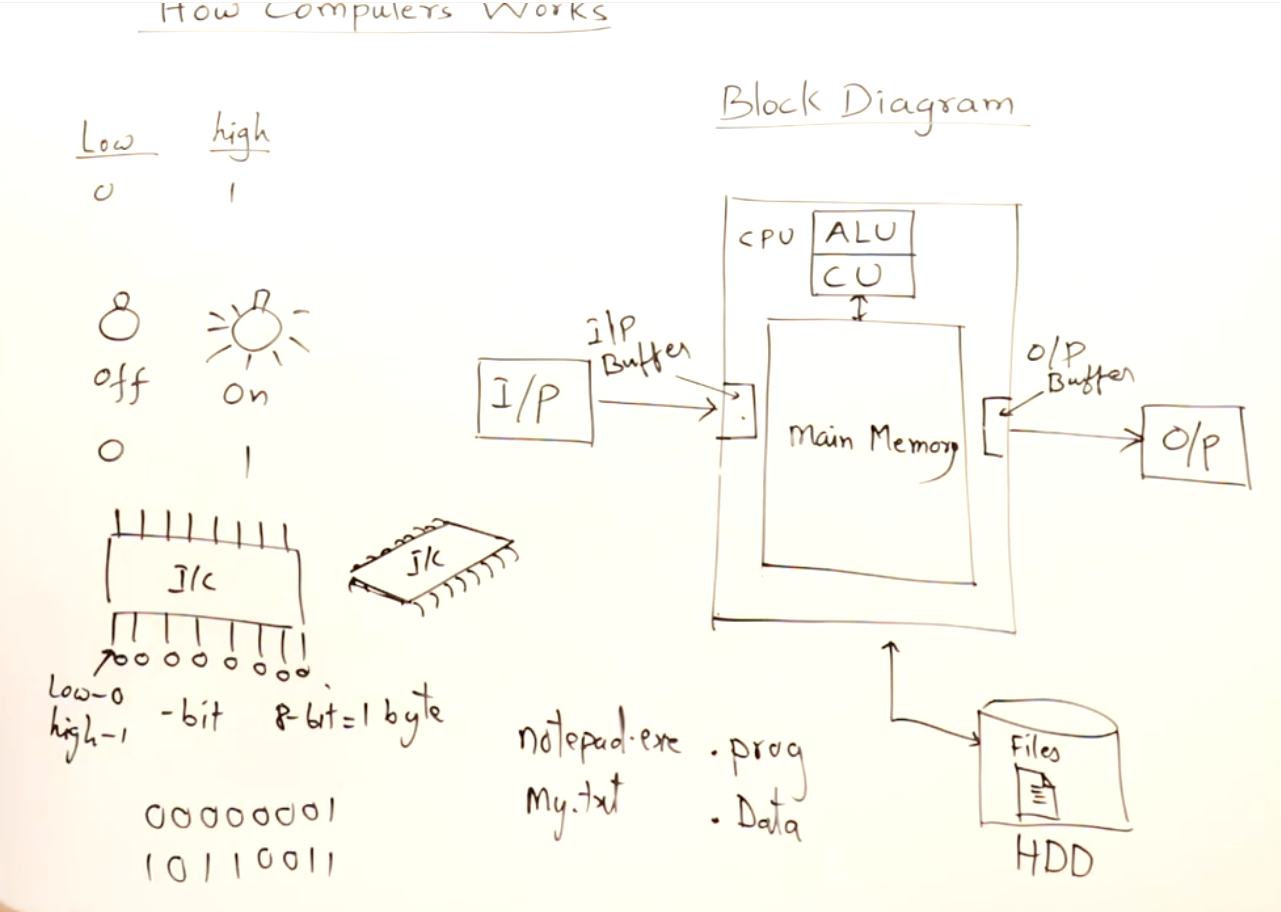 How Computers Works
Low high
0 1
Off On
0 1
I/C
I/C
Low-0
high-1
-bit 8-bit=1 byte
00000001
10110011
Block Diagram
CPU ALU
CU
I/P
Buffer
I/P
Main Memory
O/P
Buffer
O/P
notepad.exe . prog
My.txt . Data
Files
HDD